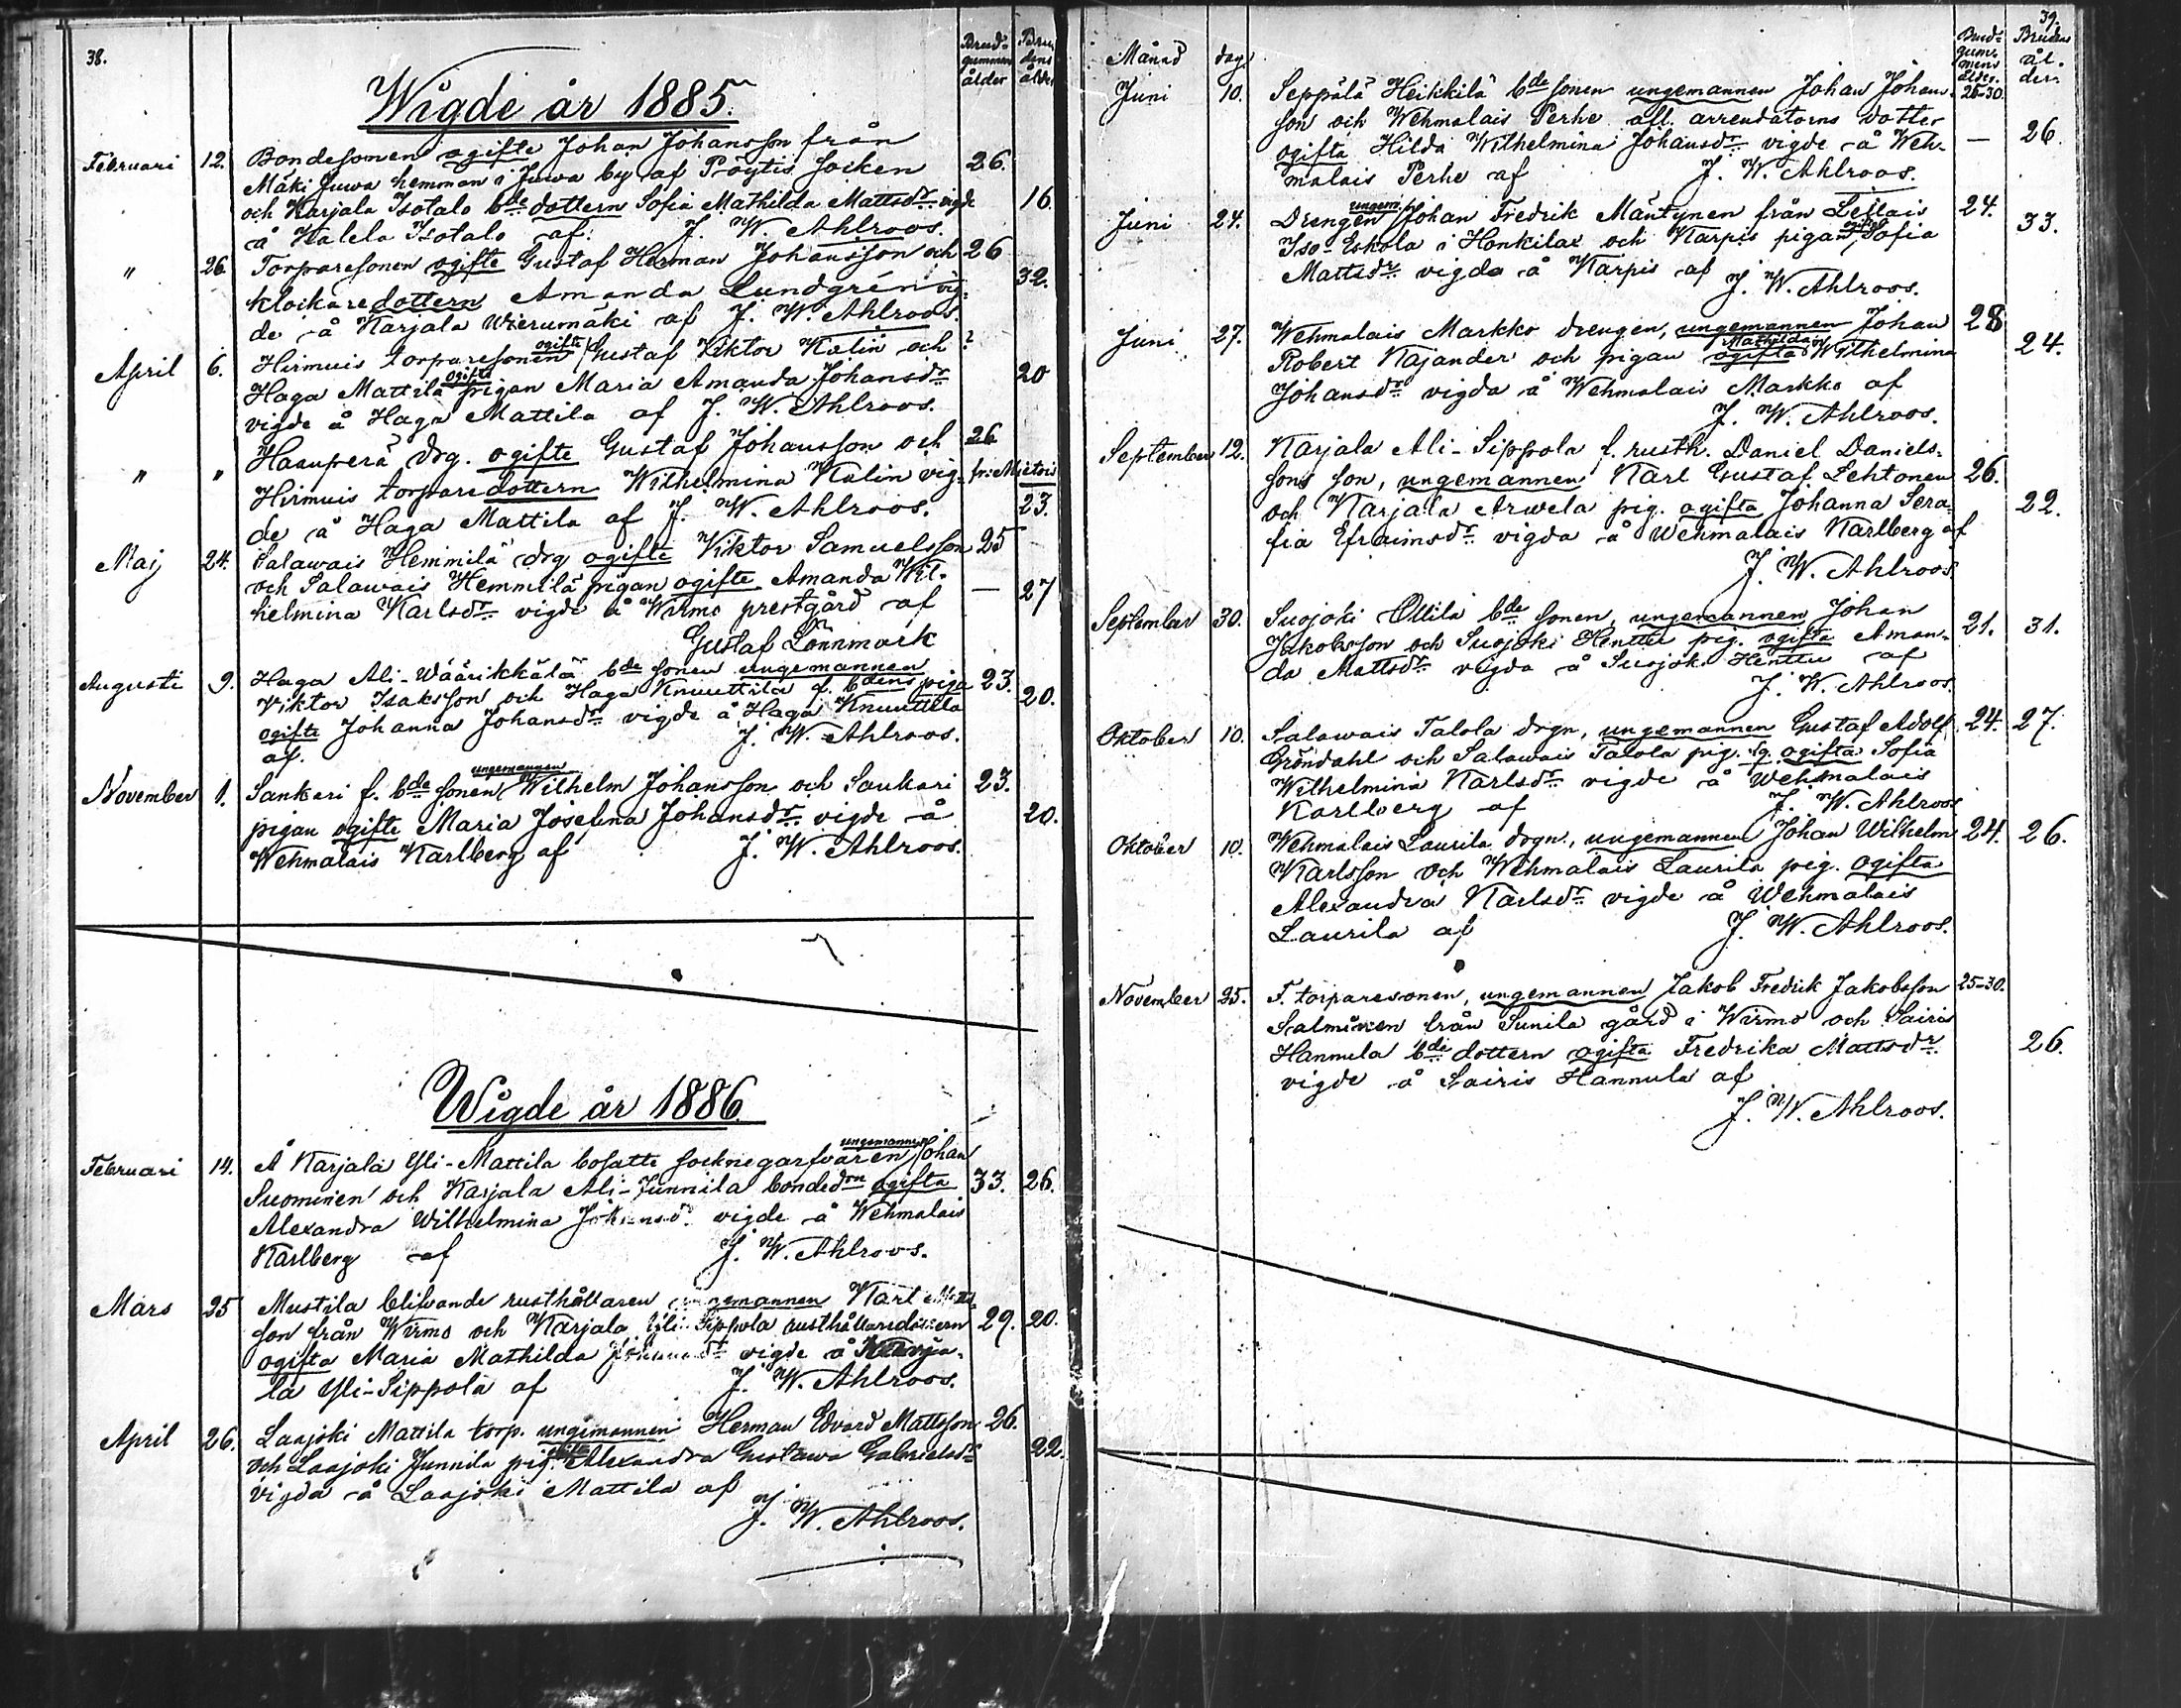 38.
Brudgummen ålder
Brudens ålder
Wigde år 1885.
Februari 12. Bondesonen ogifte Johan Johansson från
Mäki Juwa hemman i Juwa by af Pöytis socken 26.
och Karjala Isotalo bde dottern Sofia Mathilda Mattsdr. vigde 16.
å Kalela Isotalo af. J. W. Ahlroos.
" 26. Torparesonen ogifte Gustaf Herman Johansson och 26
klockaredottern Amanda Lundgrén vig= 32.
de å Karjala Wierumäki af J. W. Ahlroos.
April 6. Hirmuis torparesonen ogifte Gustaf Viktor Kalin och ?
Haga Mattila ogifte pigan Maria Amanda Johansdr 20
vigde å Haga Mattila af J. W. Ahlroos.
" " Haanperä drg. ogifte Gustaf Johansson och 26
Hirmuis torparedottern Wilhelmina Kalin vig= fr. Mietois
de å Haga Mattila af J. W. Ahlroos. 23.
Maj 24. Salawais Hemmilä drg ogifte Viktor Samuelsson 25
och Salawais Hemmilä pigan ogifte Amanda Wil- — 27
helmina Karlsdr. vigde å Wirmo prestgård af
Gustaf Lönnmark
Augusti 9. Haga Ali-Wäärikkälä bde sonen ungemannen
Viktor Isaksson och Haga Knuuttila f. bdens piga 23.
ogifte Johanna Johansdr. vigde å Haga Knuuttila 20.
af. J. W. Ahlroos.
November 1. Sankari f. bde sonen ungemannen Wilhelm Johansson och Sankari 23.
pigan ogifte Maria Josefina Johansdr. vigde å 20.
Wehmalais Karlberg af J. W. Ahlroos.
Wigde år 1886.
Februari 14. Å Karjala Yli-Mattila bosatte socknegarfvaren ungemannen Johan
Suominen och Karjala Ali-Junnila bondedrn ogifta 33. 26.
Alexandra Wilhelmina Johansdr. vigde å Wehmalais
Karlberg af J. W. Ahlroos.
Mars 25 Mustila blifvande rusthållaren ungemannen Karl Matts
son från Wirmo och Karjala Yli-Sippola rusthållaredottern 29. 20.
ogifta Maria Mathilda vigde å Karja-
la Yli-Sippola af J. W. Ahlroos.
April 26. Laajoki Mattila torp. ungemannen Herman Edvard Mattsson 26.
och Laajoki Junnila pig. ogifta Alexandra Gustawa Gabrielsdr 22.
vigda å Laajoki Mattila af
J. W. Ahlroos.
39.
Månad dag
Brudgummens ålder.
Brudens ålder.
Juni 10. Seppälä Heikkilä bde sonen ungemannen Johan Johans- 25-30.
son och Wehmalais Perhe afl. arrendatorns dotter
ogifta Hilda Wilhelmina Johansdr. vigde å Weh- — 26.
malais Perhe af J. W. Ahlroos.
Juni 24. Drengen ungem. Johan Fredrik Mäntynen från Lellais 24.
Iso-Eskola i Honkilax och Karpis pigan ogifta Sofia 33.
Mattsdr. vigda å Karpis af J. W. Ahlroos.
Juni 27. Wehmalais Markko drengen, ungemannen Johan 28
Robert Kajander och pigan ogifta Mathilda Wilhelmina 24.
Johansdr vigda å Wehmalais Markko af
J. W. Ahlroos.
September 12. Karjala Ali-Sippola f. rusth. Daniel Daniels-
sons son, ungemannen Karl Gustaf Lehtonen 26.
och Karjala Arwela pig. ogifta Johanna Sera- 22.
fia Efraimsdr. vigda å Wehmalais Karlberg af
J. W. Ahlroos.
September 30. Suojoki Ollila bde sonen, ungemannen Johan
Jakobsson och Suojoki Henttu pig. ogifta Aman- 21. 31.
da Mattsdr. vigda å Suojoki Henttu af
J. W. Ahlroos.
Oktober 10. Salawais Talola drgn, ungemannen Gustaf Adolf 24. 27.
Gröndahl och Salawais Talola pig. ogifta Sofia
Wilhelmina Karlsdr. vigde å Wehmalais
Karlberg af J. W. Ahlroos
Oktober 10. Wehmalais Laurila drgn., ungemannen Johan Wilhelm 24. 26.
Karlsson och Wehmalais Laurila pig. ogifta
Alexandra Karlsdr. vigde å Wehmalais
Laurila af J. W. Ahlroos.
November 25. F. torparesonen, ungemannen Jakob Fredrik Jakobsson 25-30.
Salminen från Sunila gård i Wirmo och Sairis
Hannula bde dottern ogifta Fredrika Mattsdr. 26.
vigde å Sairis Hannula af
J. W. Ahlroos.